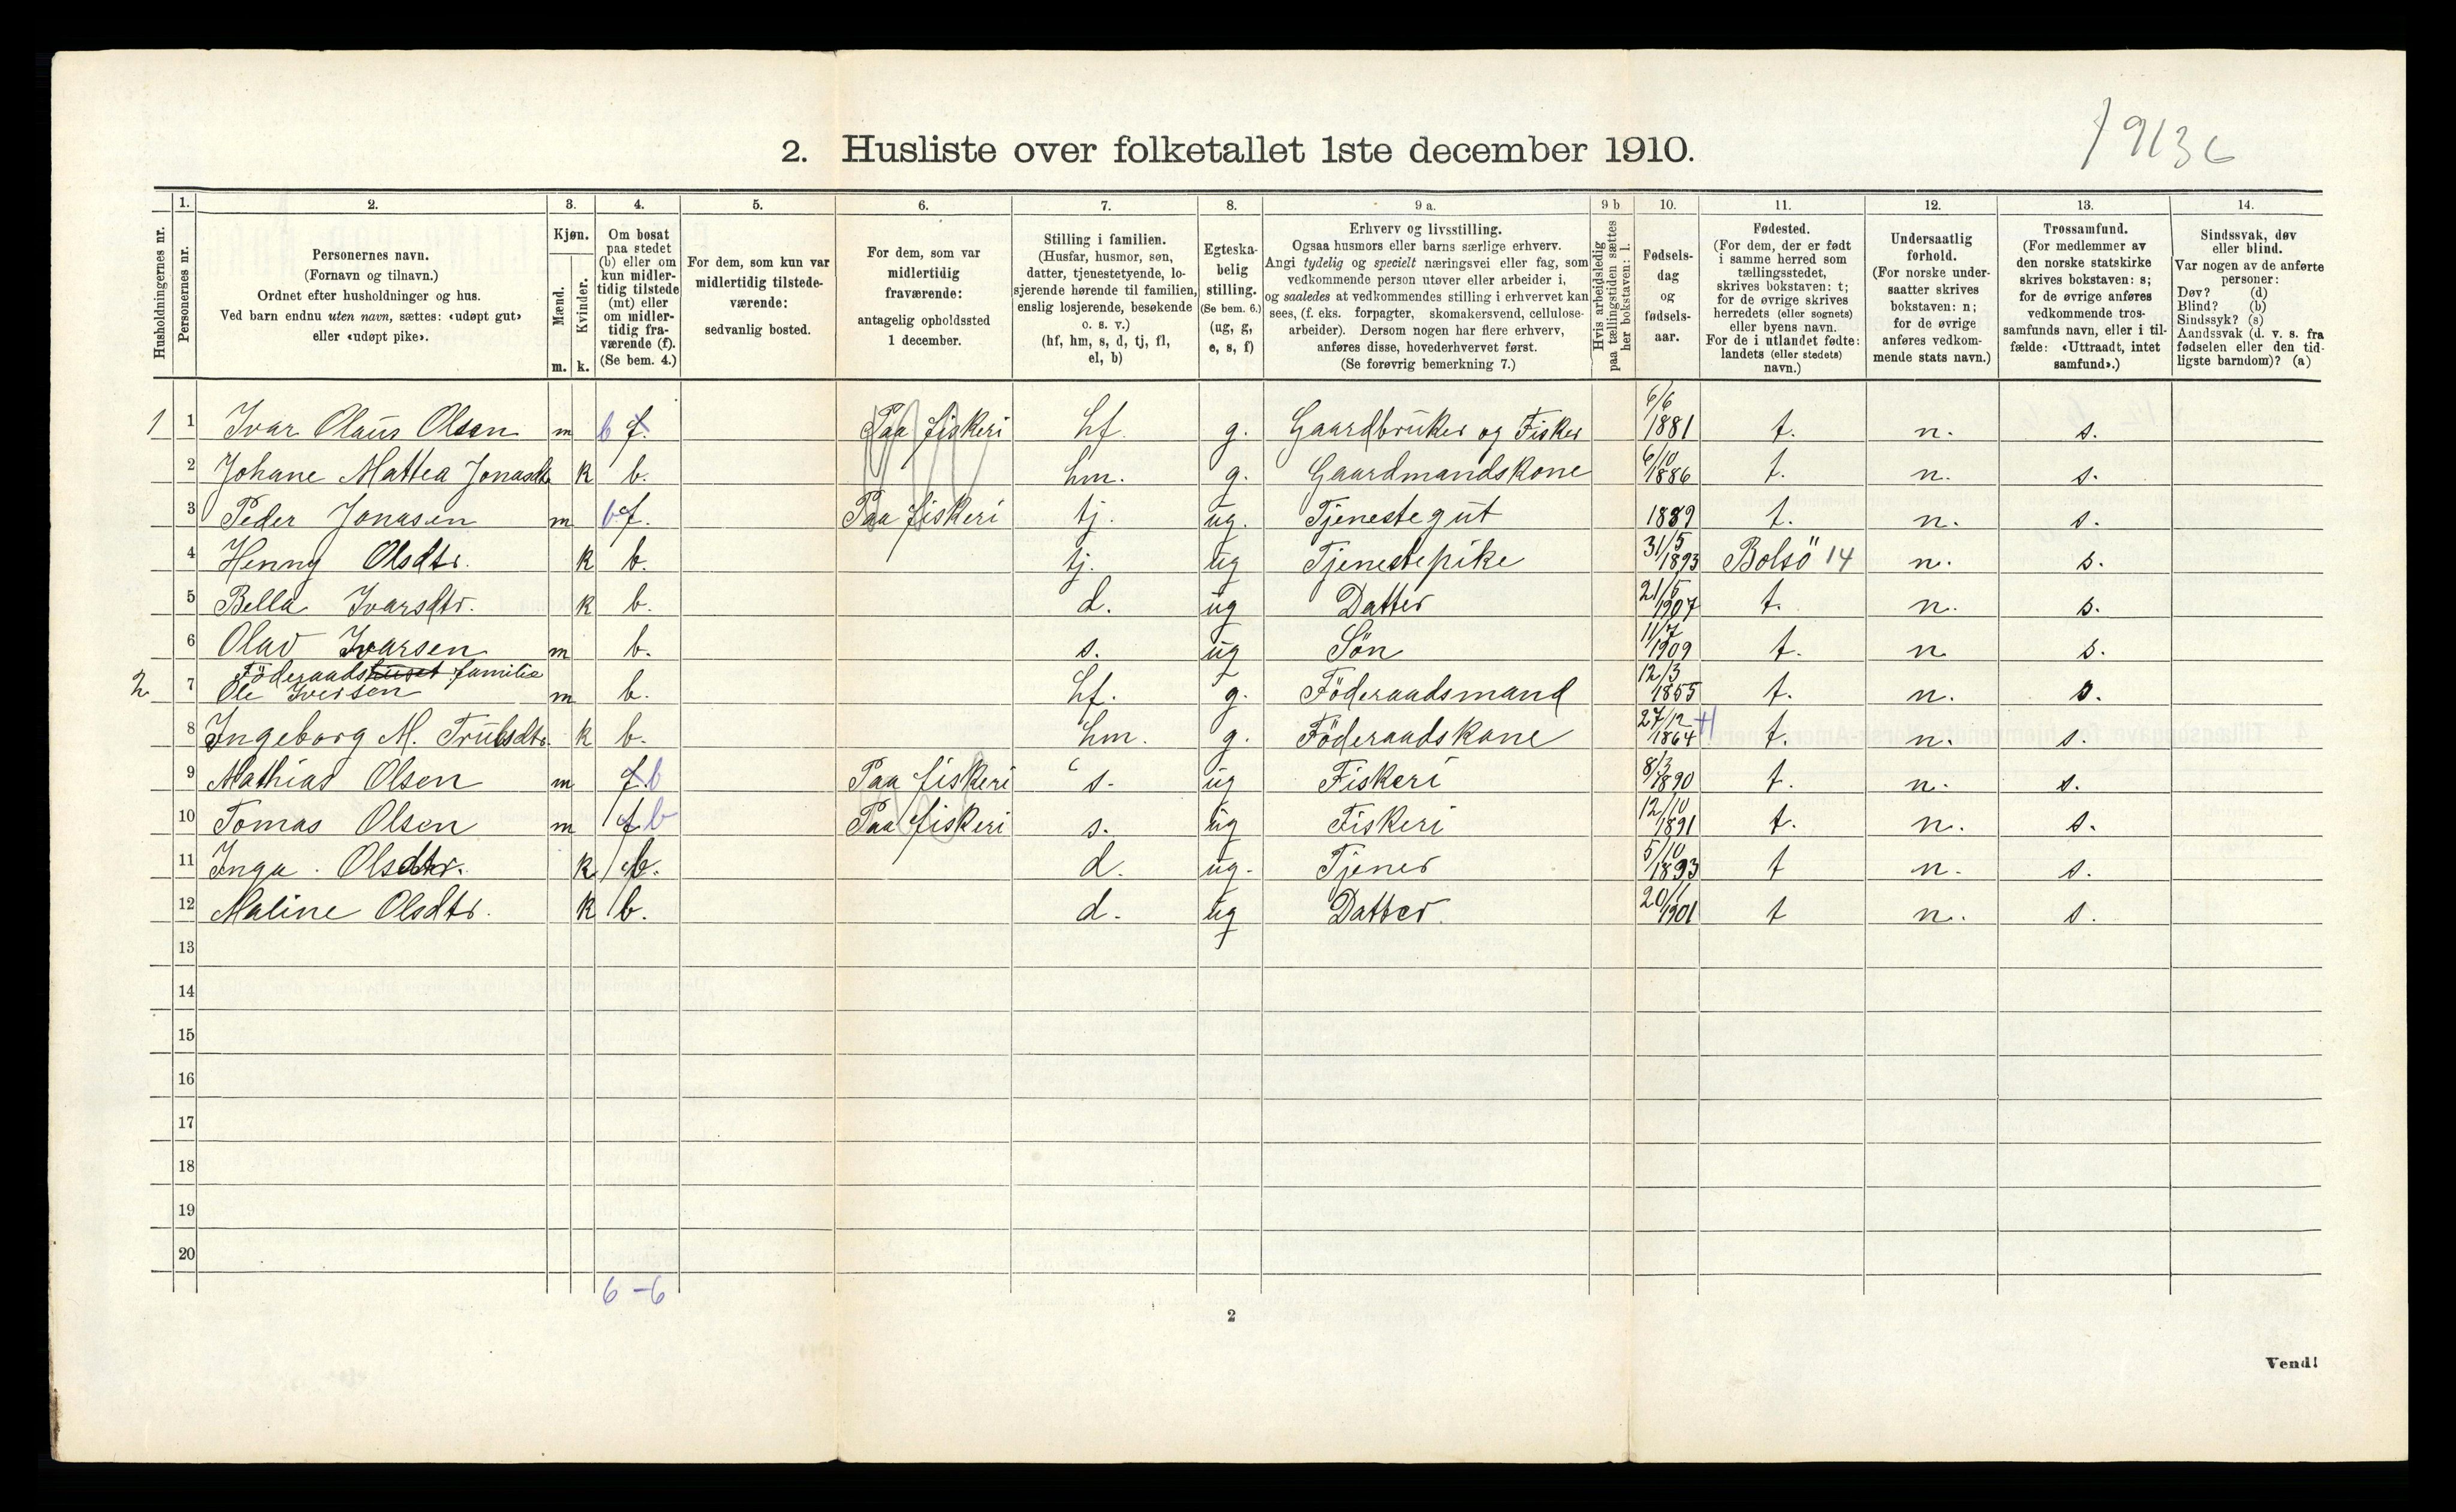 19136
2. Husliste over folketallet 1ste december 1910.
Husholdningernes nr. | 1. Personernes nr. | 2. Personernes navn. (Fornavn og tilnavn.) Ordnet efter husholdninger og hus. Ved barn endnu uten navn, sættes: «udøpt gut» eller «udøpt pike». | 3. Kjøn. Mænd. m. Kvinder. k. | 4. Om bosat paa stedet (b) eller om kun midlertidig tilstede (mt) eller om midlertidig fraværende (f). (Se bem. 4.) | 5. For dem, som kun var midlertidig tilstedeværende: sedvanlig bosted. | 6. For dem, som var midlertidig fraværende: antagelig opholdssted 1 december. | 7. Stilling i familien. (Husfar, husmor, søn, datter, tjenestetyende, losjerende hørende til familien, enslig losjerende, besøkende o. s. v.) (hf, hm, s, d, tj, fl, el, b) | 8. Egteskabelig stilling. (Se bem. 6.) (ug, g, e, s, f) | 9 a. Erhverv og livsstilling. Ogsaa husmors eller barns særlige erhverv. Angi tydelig og specielt næringsvei eller fag, som vedkommende person utøver eller arbeider i, og saaledes at vedkommendes stilling i erhvervet kan sees, (f. eks. forpagter, skomakersvend, cellulosearbeider). Dersom nogen har flere erhverv, anføres disse, hovederhvervet først. (Se forøvrig bemerkning 7.) | 9 b Hvis arbeidsledig paa tællingstiden sættes her bokstaven: l. | 10. Fødselsdag og fødselsaar. | 11. Fødested. (For dem, der er født i samme herred som tællingsstedet, skrives bokstaven: t; for de øvrige skrives herredets (eller sognets) eller byens navn. For de i utlandet fødte: landets (eller stedets) navn.) | 12. Undersaatlig forhold. (For norske undersaatter skrives bokstaven: n; for de øvrige anføres vedkommende stats navn.) | 13. Trossamfund. (For medlemmer av den norske statskirke skrives bokstaven: s; for de øvrige anføres vedkommende trossamfunds navn, eller i tilfælde: «Uttraadt, intet samfund».) | 14. Sindssvak, døv eller blind. Var nogen av de anførte personer: Døv? (d) Blind? (b) Sindssyk? (s) Aandssvak (d. v. s. fra fødselen eller den tidligste barndom)? (a)
1 1 Ivar Olaus Olsen m b f. Paa fiskeri hf. g. Gaardbruker og Fisker 6/6 1881 t. n. s.
2 Johane Mattea Jonasdtr k b. hm. g. Gaardmandskone 6/10 1886 t. n. s.
3 Peder Jonasen m b f. Paa fiskeri tj. ug. Tjenestegut 1889 t. n. s.
4 Henny Olsdtr. k b. tj. ug Tjenestepike 31/5 1893 Bolsö 14 n. s.
5 Bella Ivarsdtr. k b. d. ug Datter 21/5 1907 t. n. s.
6 Olav Ivarsen m b. s. ug Sön 11/7 1909 t. n s.
Föderaadshuset familie
2 7 Ole Iversen m b. hf. g. Föderaadsmand 12/3 1855 t. n. s.
8 Ingeborg M. Trulsdtr. k b. hm. g. Föderaadskone 27/12 1864 t. n. s.
9 Mathias Olsen m f. b Paa fiskeri s. ug Fiskeri 8/3 1890 t. n. s.
10 Tomas Olsen m f b Paa fiskeri s. ug Fiskeri 12/10 1891 t. n. s.
11 Inga Olsdtr. k b. d. ug. Tjener 5/10 1893 t n. s.
12 Maline Olsdtr. k b. d. ug Datter. 20/1 1901 t n. s.
13
14
15
16
17
18
19
20
6 - 6
2
Vend!